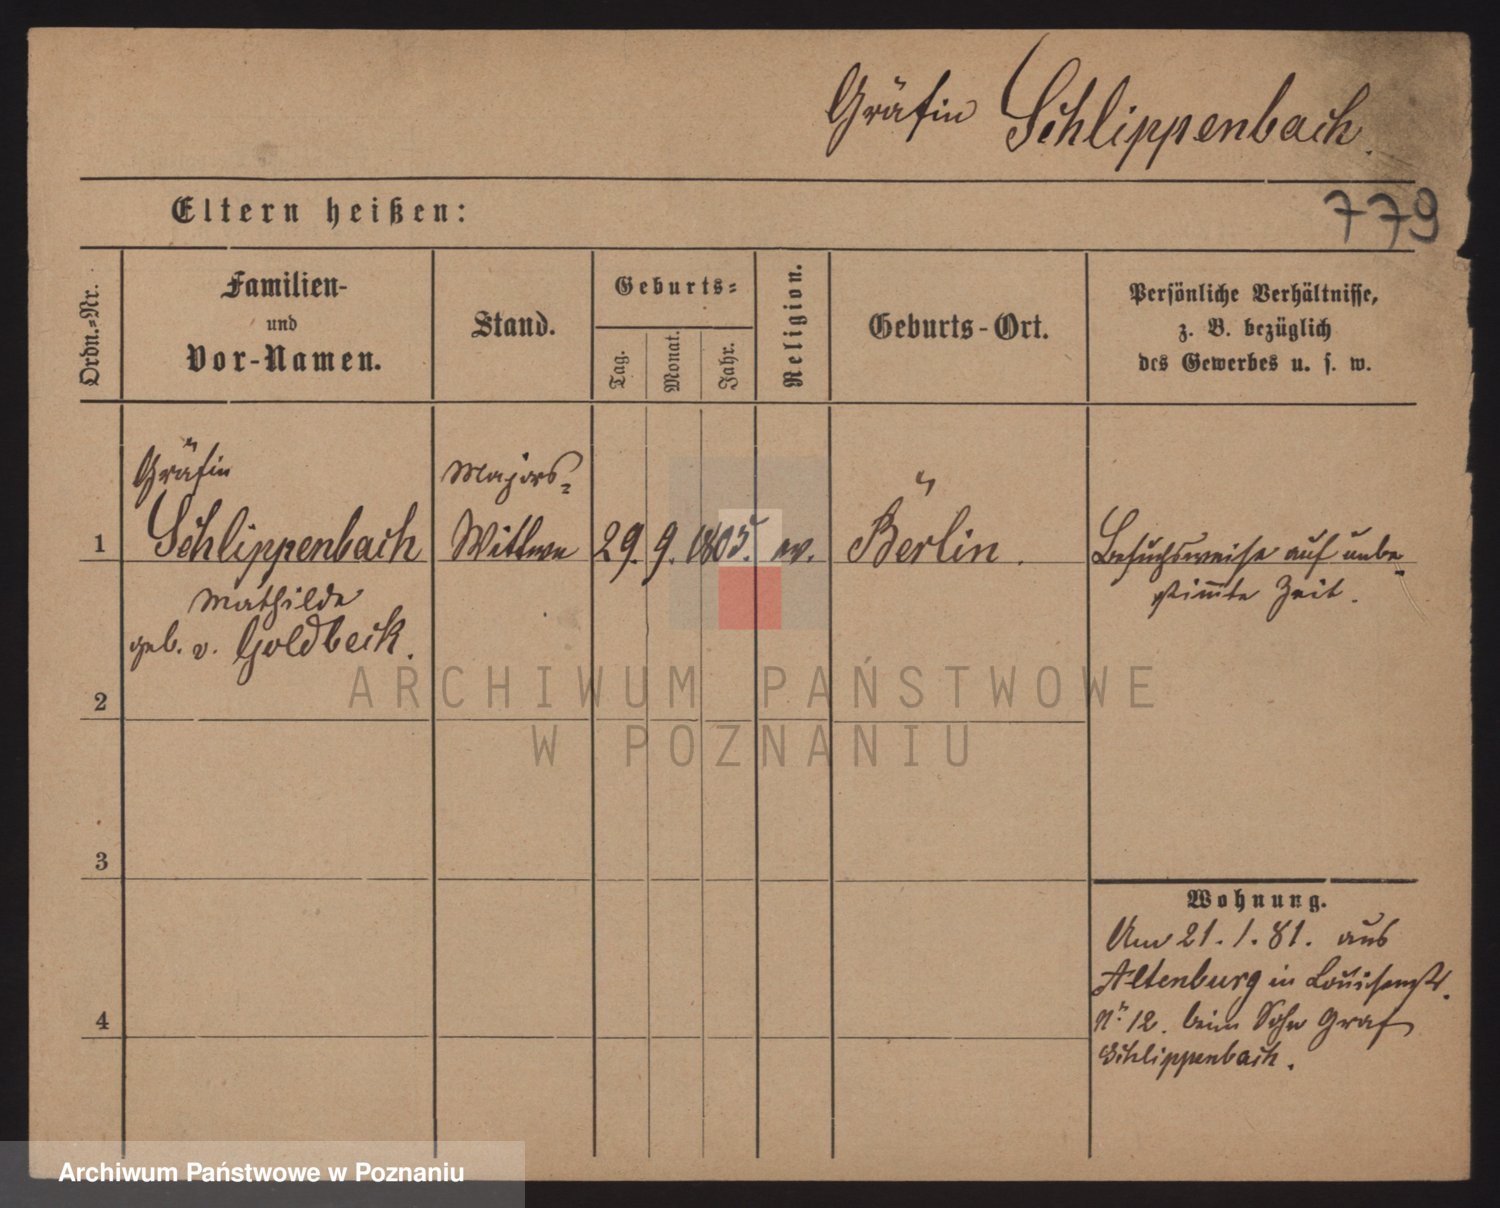 Gräfin Schlippenbach.
Eltern heißen:
779
Ordn.=Nr.
Familien-
und
Vor-Namen.
Stand.
Geburts=
Tag.
Monat.
Jahr.
Religion.
Geburts-Ort.
Persönliche Verhältnisse,
z. B. bezüglich
des Gewerbes u. s. w.
1
Gräfin
Schlippenbach
Mathilde
geb. v. Goldbeck.
Majors=
Wittwe
29.
9.
1805.
ev.
Berlin.
Besuchsweise auf unbe-
stimmte Zeit.
2
3
4
Wohnung.
Am 21.1.81. aus
Altenburg in Louisenstr.
No. 12. beim Sohn Graf
Schlippenbach.
ARCHIWUM PAŃSTWOWE
W POZNANIU
Archiwum Państwowe w Poznaniu